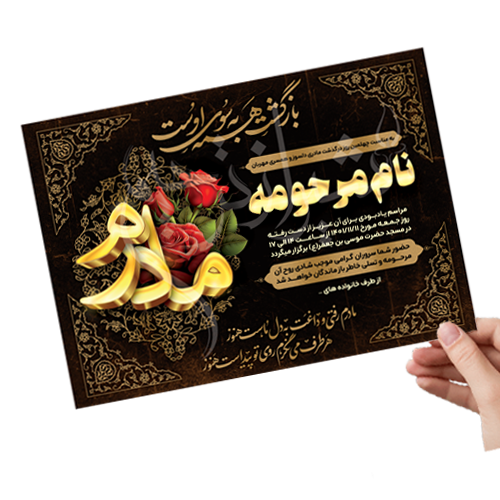 بازگشت همه به سوی اوست
به مناسبت چهلمین روز درگذشت مادری دلسوز و همسری مهربان
نام مرحومه
مادرم
مراسم یادبودی برای آن عزیز از دست رفته
روز جمعه مورخ ۱۴۰۱/۱۱/۱۱ از ساعت ۱۴ الی ۱۷
در مسجد حضرت موسی بن جعفر(ع) برگزار میگردد
حضور شما سروران گرامی موجب شادی روح آن
مرحومه و تسلی خاطر بازماندگان خواهد شد
از طرف خانواده های ..
مادرم رفتی و داغت به دل ماست هنوز
هر طرف می نگرم روی تو پیداست هنوز